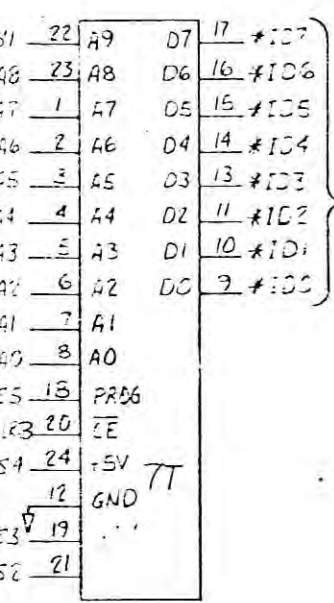 22 A9 D7 17 *ID7
A8 23 A8 D6 16 *ID6
A7 1 A7 D5 15 *ID5
A6 2 A6 D4 14 *ID4
A5 3 A5 D3 13 *ID3
A4 4 A4 D2 11 *ID2
A3 5 A3 D1 10 *ID1
A2 6 A2 D0 9 *ID0
A1 7 A1
A0 8 A0
18 PROG
20 CE
24 +5V 7T
12 GND
19
21